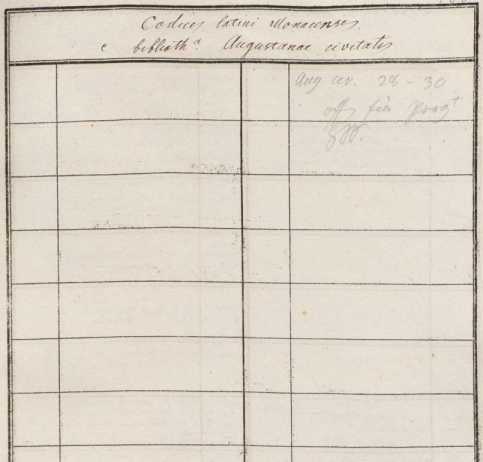 Codices latini Monacenses
e biblioth.ª Augustanae civitatis
Aug civ. 28 - 30
für